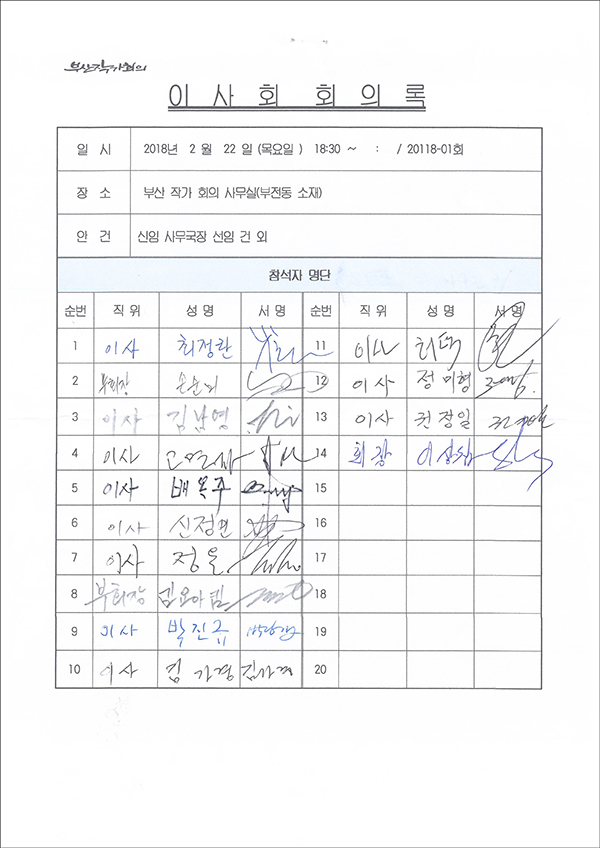 부산작가회의
이 사 회 회 의 록
일 시 2018년 2 월 22 일 (목요일) 18:30 ~ : / 20118-01회
장 소 부산 작가 회의 사무실(부전동 소재)
안 건 신임 사무국장 선임 건 외
참석자 명단
순번 직 위 성 명 서 명 순번 직 위 성 명 서 명
1 이사 최정란 11 이사
2 부회장 손순이 12 이사 정미형
3 이사 김남영 13 이사 권정일
4 이사 14 회장
5 이사 배옥주 15
6 이사 신정민 16
7 이사 정온 17
8 부회장 김요아킴 18
9 이사 박진규 19
10 이사 김가경 김가경 20